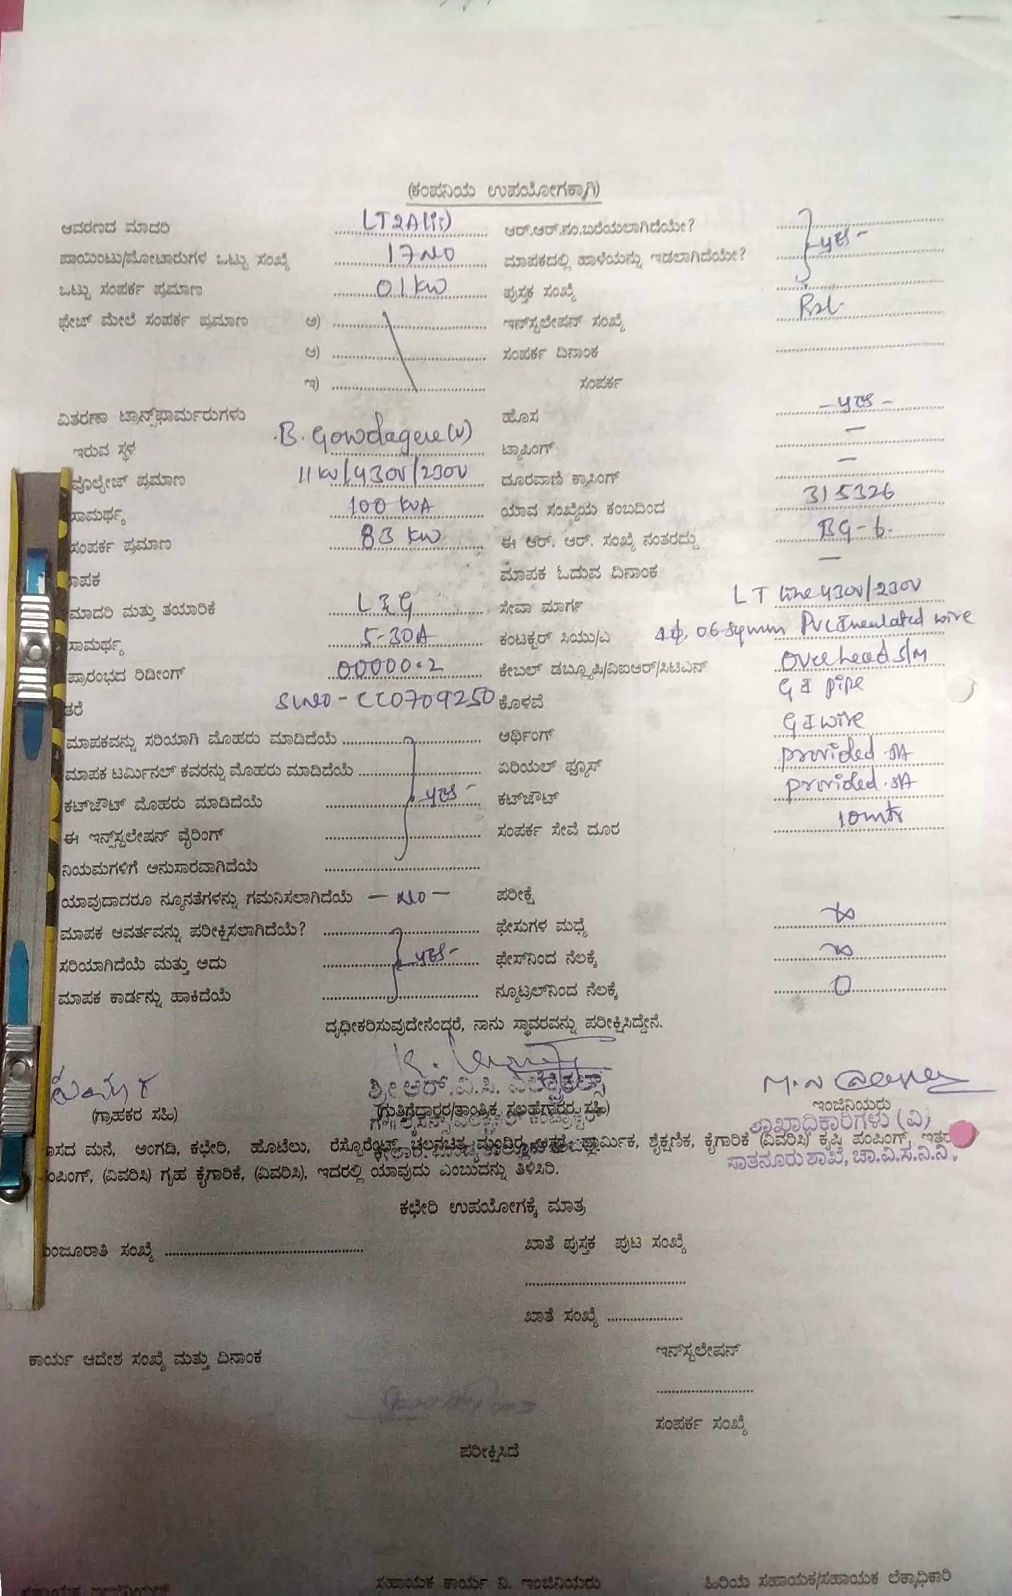 (ಕಂಪನಿಯ ಉಪಯೋಗಕ್ಕಾಗಿ)
ಆವರಣದ ಮಾದರಿ LT2A(ii) ಆರ್.ಆರ್.ನಂ.ಬರೆಯಲಾಗಿದೆಯೇ?
ಪಾಯಿಂಟು/ಮೋಟಾರುಗಳ ಒಟ್ಟು ಸಂಖ್ಯೆ 17 NO ಮಾಪಕದಲ್ಲಿ ಹಾಳೆಯನ್ನು ಇಡಲಾಗಿದೆಯೇ? yes-
ಒಟ್ಟು ಸಂಪರ್ಕ ಪ್ರಮಾಣ 01 KW ಪುಸ್ತಕ ಸಂಖ್ಯೆ
ಫೇಜ್ ಮೇಲೆ ಸಂಪರ್ಕ ಪ್ರಮಾಣ ಅ) ಇನ್‌ಸ್ಟಲೇಷನ್ ಸಂಖ್ಯೆ
ಆ) ಸಂಪರ್ಕ ದಿನಾಂಕ
ಇ) ಸಂಪರ್ಕ
ವಿತರಣಾ ಟ್ರಾನ್ಸ್‌ಫಾರ್ಮರುಗಳು ಹೊಸ - yes -
ಇರುವ ಸ್ಥಳ B. Gowdagere (V) ಟ್ಯಾಪಿಂಗ್ -
ವೊಲ್ಟೇಜ್ ಪ್ರಮಾಣ 11KV/430V/230V ದೂರವಾಣಿ ಕ್ರಾಸಿಂಗ್ -
ಸಾಮರ್ಥ್ಯ 100 KVA ಯಾವ ಸಂಖ್ಯೆಯ ಕಂಬದಿಂದ 315326
ಸಂಪರ್ಕ ಪ್ರಮಾಣ 83 KW ಈ ಆರ್. ಆರ್. ಸಂಖ್ಯೆ ನಂತರದ್ದು BG-6.
ಾಪಕ ಮಾಪಕ ಓದುವ ದಿನಾಂಕ -
ಮಾದರಿ ಮತ್ತು ತಯಾರಿಕೆ L&G ಸೇವಾ ಮಾರ್ಗ LT Line 430V/230V
ಸಾಮರ್ಥ್ಯ 5-30A ಕಂಟಕ್ಟರ್ ಸಿಯು/ಎ 06 Sqmm PVC Insulated wire
ಪ್ರಾರಂಭದ ರಿಡಿಂಗ್ 00000.2 ಕೇಬಲ್ ಡಬ್ಲ್ಯೂಪಿ/ವಿಐಆರ್/ಸಿಟಿಎಸ್ Overhead S/M
ತರೆ SLNO - CC0709250 ಕೊಳವೆ GI pipe
ಮಾಪಕವನ್ನು ಸರಿಯಾಗಿ ಮೊಹರು ಮಾಡಿದೆಯೆ ಆರ್ಥಿಂಗ್ GI wire
ಮಾಪಕ ಟರ್ಮಿನಲ್ ಕವರನ್ನು ಮೊಹರು ಮಾಡಿದೆಯೆ ಏರಿಯಲ್ ಫ್ಯೂಸ್ provided 5A
ಕಟ್‌ಔಟ್ ಮೊಹರು ಮಾಡಿದೆಯೆ yes- ಕಟ್‌ಔಟ್ provided 5A
ಈ ಇನ್ಸ್‌ಸ್ಟಲೇಷನ್ ವೈರಿಂಗ್ ಸಂಪರ್ಕ ಸೇವೆ ದೂರ 10mtr
ನಿಯಮಗಳಿಗೆ ಅನುಸಾರವಾಗಿದೆಯೆ
ಯಾವುದಾದರೂ ನ್ಯೂನತೆಗಳನ್ನು ಗಮನಿಸಲಾಗಿದೆಯೆ - NO - ಪರೀಕ್ಷೆ
ಮಾಪಕ ಆವರ್ತವನ್ನು ಪರೀಕ್ಷಿಸಲಾಗಿದೆಯೇ? ಫೇಸುಗಳ ಮಧ್ಯೆ ∞
ಸರಿಯಾಗಿದೆಯೆ ಮತ್ತು ಅದು yes- ಫೇಸ್‌ನಿಂದ ನೆಲಕ್ಕೆ ∞
ಮಾಪಕ ಕಾರ್ಡನ್ನು ಹಾಕಿದೆಯೆ ನ್ಯೂಟ್ರಲ್‌ನಿಂದ ನೆಲಕ್ಕೆ 0
ದೃಢೀಕರಿಸುವುದೇನೆಂದ್ದರೆ, ನಾನು ಸ್ಥಾವರವನ್ನು ಪರೀಕ್ಷಿಸಿದ್ದೇನೆ.
ಶ್ರೀ ಆರ್.ವಿ.ಸಿ. ಎಲೆಕ್ಟ್ರಿಕಲ್ಸ್
(ಗ್ರಾಹಕರ ಸಹಿ) (ಗುತ್ತಿಗೆದ್ದಾರರ/ತಾಂತ್ರಿಕ ಸಲಹೆಗಾರರ ಸಹಿ) ಇಂಜಿನಿಯರು
ಶಾಖಾಧಿಕಾರಿಗಳು (ವಿ)
ಾಸದ ಮನೆ, ಅಂಗದಿ, ಕಛೇರಿ, ಹೊಟೆಲು, ರೆಸ್ಟೊರೆಂಟ್, ಚಲನಚಿತ್ರ ಮಂದಿರ, ಆಸ್ಪತ್ರೆ, ಧಾರ್ಮಿಕ, ಶೈಕ್ಷಣಿಕ, ಕೈಗಾರಿಕೆ (ವಿವರಿಸಿ) ಕೃಷಿ ಪಂಪಿಂಗ್, ಇತರ
ಸಾತನೂರು ಶಾಖೆ, ಚಾ.ವಿ.ಸ.ನಿ.ನಿ.,
ಂಪಿಂಗ್, (ವಿವರಿಸಿ) ಗೃಹ ಕೈಗಾರಿಕೆ, (ವಿವರಿಸಿ), ಇದರಲ್ಲಿ ಯಾವುದು ಎಂಬುದನ್ನು ತಿಳಿಸಿರಿ.
ಕಛೇರಿ ಉಪಯೋಗಕ್ಕೆ ಮಾತ್ರ
ಂಜೂರಾತಿ ಸಂಖ್ಯೆ ಖಾತೆ ಪುಸ್ತಕ ಪುಟ ಸಂಖ್ಯೆ
ಖಾತೆ ಸಂಖ್ಯೆ
ಕಾರ್ಯ ಆದೇಶ ಸಂಖ್ಯೆ ಮತ್ತು ದಿನಾಂಕ ಇನ್‌ಸ್ಟಲೇಷನ್
ಸಂಪರ್ಕ ಸಂಖ್ಯೆ
ಪರೀಕ್ಷಿಸಿದೆ
ಸಹಾಯಕ ಇಂಜಿನಿಯರ್ ಸಹಾಯಕ ಕಾರ್ಯ ನಿ. ಇಂಜಿನಿಯರು ಹಿರಿಯ ಸಹಾಯಕ/ಸಹಾಯಕ ಲೆಕ್ಕಾಧಿಕಾರಿ